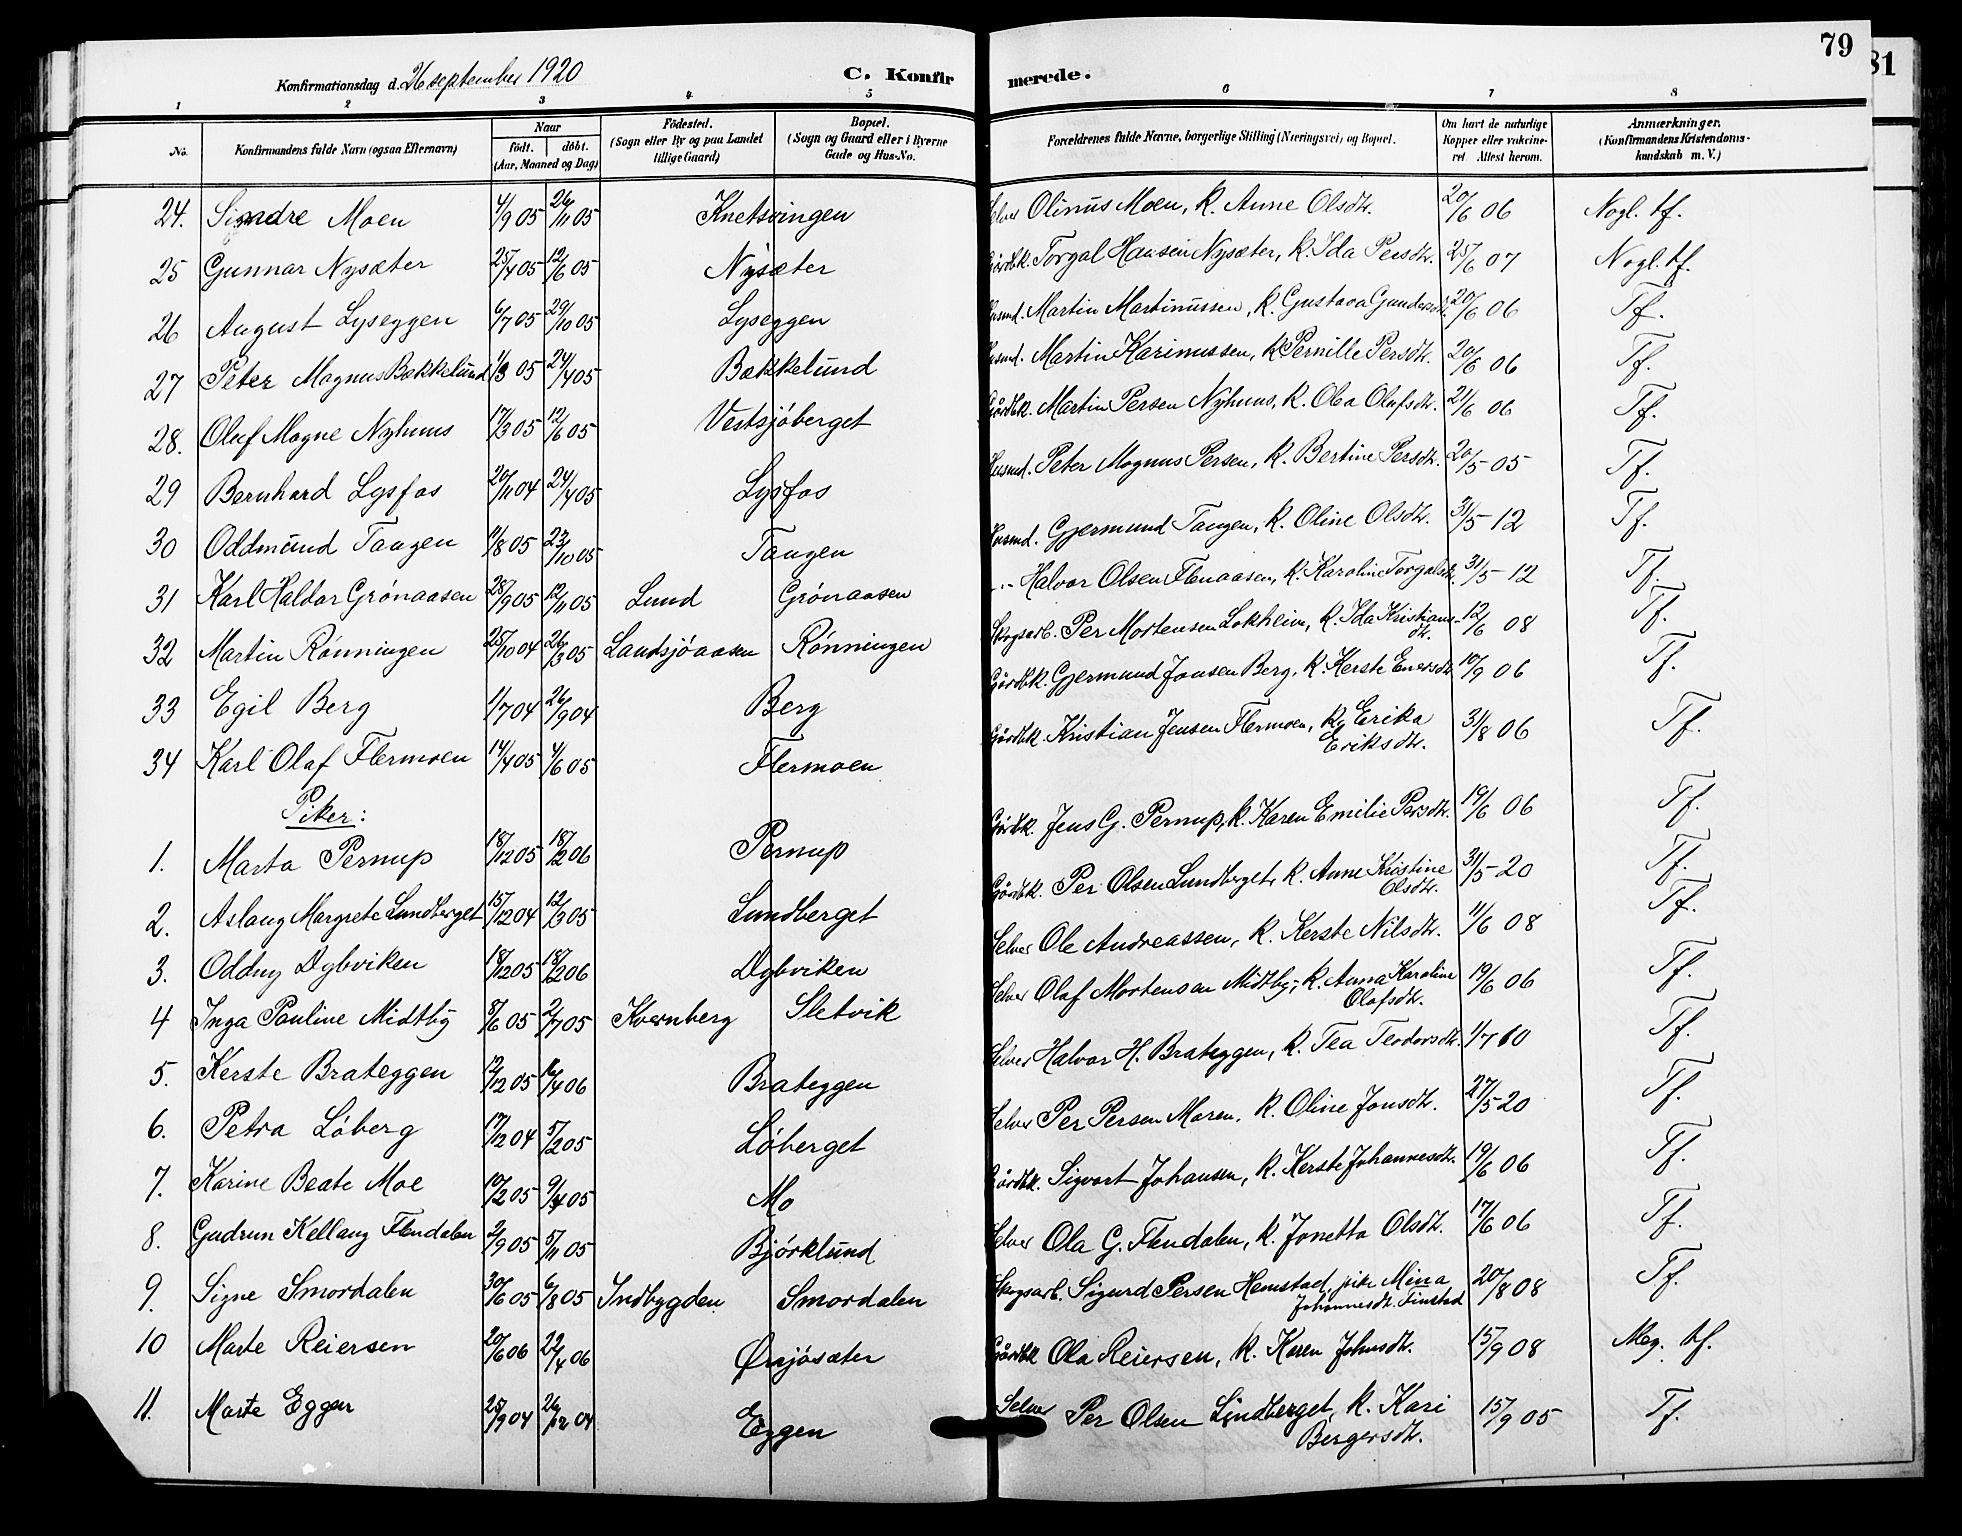 79
81
Konfirmationsdag d. 26 september 1920 C. Konfirmerede.
1 2 3 4 5 6 7 8
No. Konfirmandens fulde Navn (ogsaa Efternavn) Naar født. døbt. (Aar, Maaned og Dag) Fødested. (Sogn eller By og paa Landet tillige Gaard) Bopæl. (Sogn og Gaard eller i Byerne Gade og Hus-No. Forældrenes fulde Navne, borgerlige Stilling (Næringsvei) og Bopæl. Om havt de naturlige Kopper eller vakcineret. Attest herom. Anmærkninger. (Konfirmandens Kristendomskundskab m. V.)
24. Sindre Moen 4/9 05 26/11 05 Knetsvingen Selver Olinus Moen, k. Anne Olsdtr. 20/6 06 Nogl. tf.
25 Gunnar Nysæter 25/4 05 12/6 05 Nysæter Gårdbk. Torgal Hansen Nysæter, k. Ida Persdtr. 25/6 07 Nogl. tf.
26 August Lyseggen 6/7 05 29/10 05 Lyseggen Husmd. Martin Martinussen, k. Gustava Gundersdtr. 20/6 06 Tf.
27 Peter Magnus Bakkelund 1/3 05 24/4 05 Bakkelund Husmd. Martin Karinussen, k. Pernille Persdtr. 20/6 06 Tf.
28. Olaf Magne Nyhuus 17/3 05 12/6 05 Vestsjøberget Gårdbk. Martin Persen Nyhuus, k. Olea Olafsdtr. 21/6 06 Tf.
29 Bernhard Lysfos 20/11 04 24/4 05 Lysfos Husmd. Peter Magnus Persen, k. Bertine Persdtr. 20/5 05 Tf.
30 Oddmund Tangen 11/8 05 23/10 05 Tangen Husmd. Gjermund Tangen, k. Oline Olsdtr. 31/5 12 Tf.
31 Karl Haldor Grønaasen 28/9 05 12/11 05 Lund Grønaasen -"- Halvor Olsen Flenaasen, k. Karoline Torgalsdtr. 31/5 12 Tf.
32 Martin Rønningen 25/10 04 26/3 05 Landsjøaasen Rønningen Skogsarb. Per Mortensen Løkheim, k. Ida Kristiansdtr. 12/6 08 Tf.
33 Egil Berg 1/7 04 26/9 04 Berg Gårdbk. Gjermund Jonsen Berg, k. Kerste Enersdtr. 10/9 06 Tf.
34 Karl Olaf Flermoen 14/4 05 4/6 05 Flermoen Gårdbk. Kristian Jensen Flermoen, k. Erika Eriksdtr. 31/8 06 Tf.
Piker:
1. Marta Pernup 18/12 05 18/2 06 Pernup Gårdbk. Jens G. Pernup, k. Karen Emilie Persdtr. 19/6 06 Tf.
2. Aslaug Margrete Lundberget 15/12 04 12/3 05 Lundberget Gårdbk. Per Olsen Lundberget, k. Anne Kristine Olsdtr. 31/5 20 Tf.
3. Oddny Dybviken 18/12 05 18/2 06 Dybviken Selver Ole Andreassen, k. Kerste Nilsdtr. 11/6 08 Tf.
4 Inga Pauline Midtby 8/6 05 2/7 05 Kvernberg Sletvik Selver Olaf Mortensen Midtby, k. Anna Karoline Olafsdtr. 19/6 06 Tf.
5. Kerste Brateggen 12/12 05 16/4 06 Brateggen Selver Halvor H. Brateggen, k. Tea Teodorsdtr. 1/7 10 Tf.
6. Petra Løberg 17/12 04 5/2 05 Løberget Selver Per Persen Moren, k. Oline Jonsdtr. 27/5 20 Tf.
7. Karine Beate Moe 10/2 05 9/4 05 Mo Gårdbk. Sigvart Johansen, k. Kerste Johannesdtr. 19/6 06 Tf.
8. Gudrun Kellaug Flendalen 2/9 05 5/11 05 Bjørklund Selver Ola G. Flendalen, k. Jonetta Olsdtr. 17/6 06 Tf.
9. Signe Smordalen 30/6 05 6/8 05 Indbygden Smordalen Skogsarb. Sigurd Persen Hemstad, pike Mina Johannesdtr. Finstad 20/8 08 Tf.
10 Marte Reiersen 20/6 06 22/4 06 Ørsjøsæter Gårdbk Ola Reiersen, k. Karen Johnsdtr. 15/9 08 Meg. tf.
11. Marte Eggen 25/9 04 26/12 04 Eggen Selver Per Olsen Lindberget, k. Kari Bergersdtr. 15/9 05 Tf.